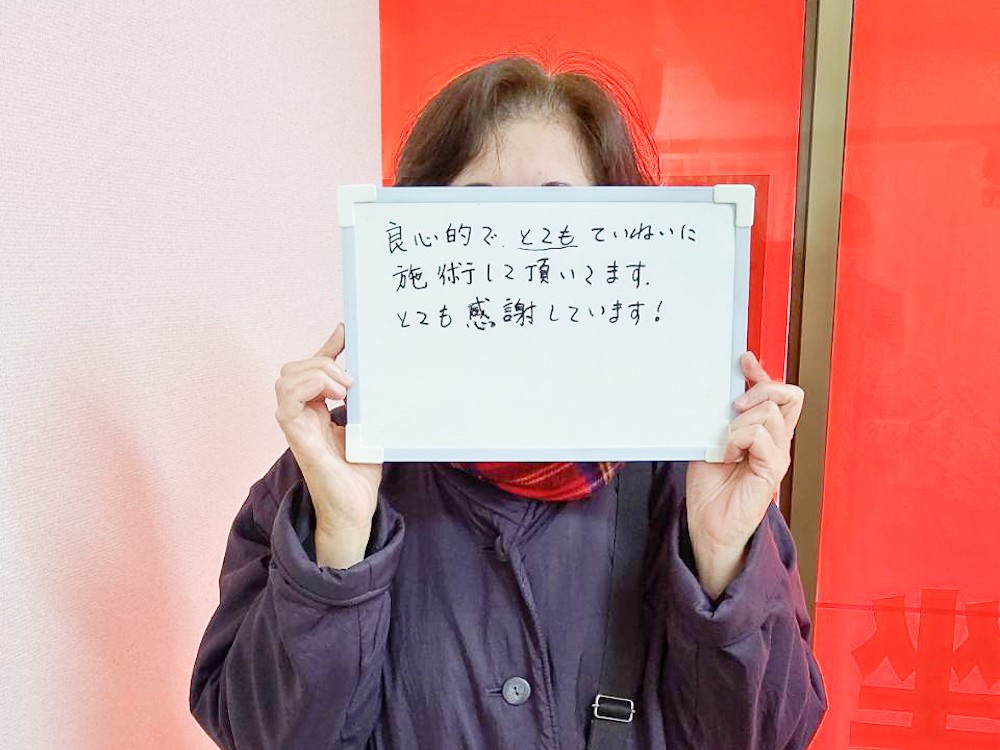 良心的で、とても ていねいに
施術して頂いてます.
とても感謝しています!